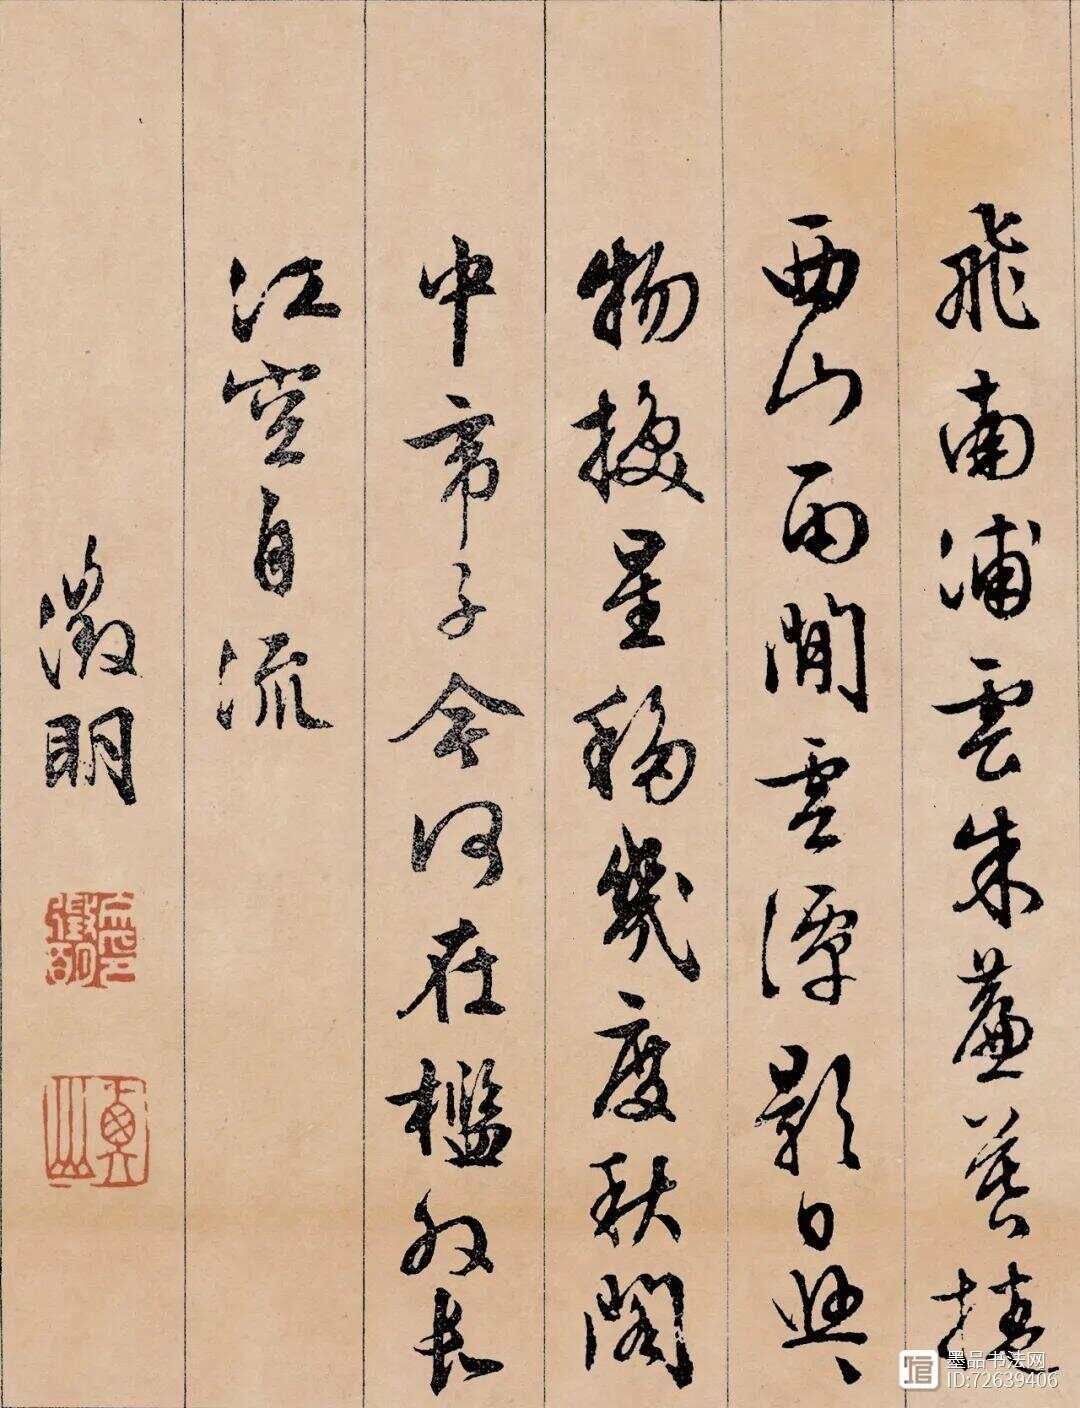 飛南浦雲朱簾暮捲
西山雨閒雲潭影日悠々
物換星移幾度秋閣
中帝子今何在檻外長
江空自流
徵明
衡山
墨品书法网
ID:72639406